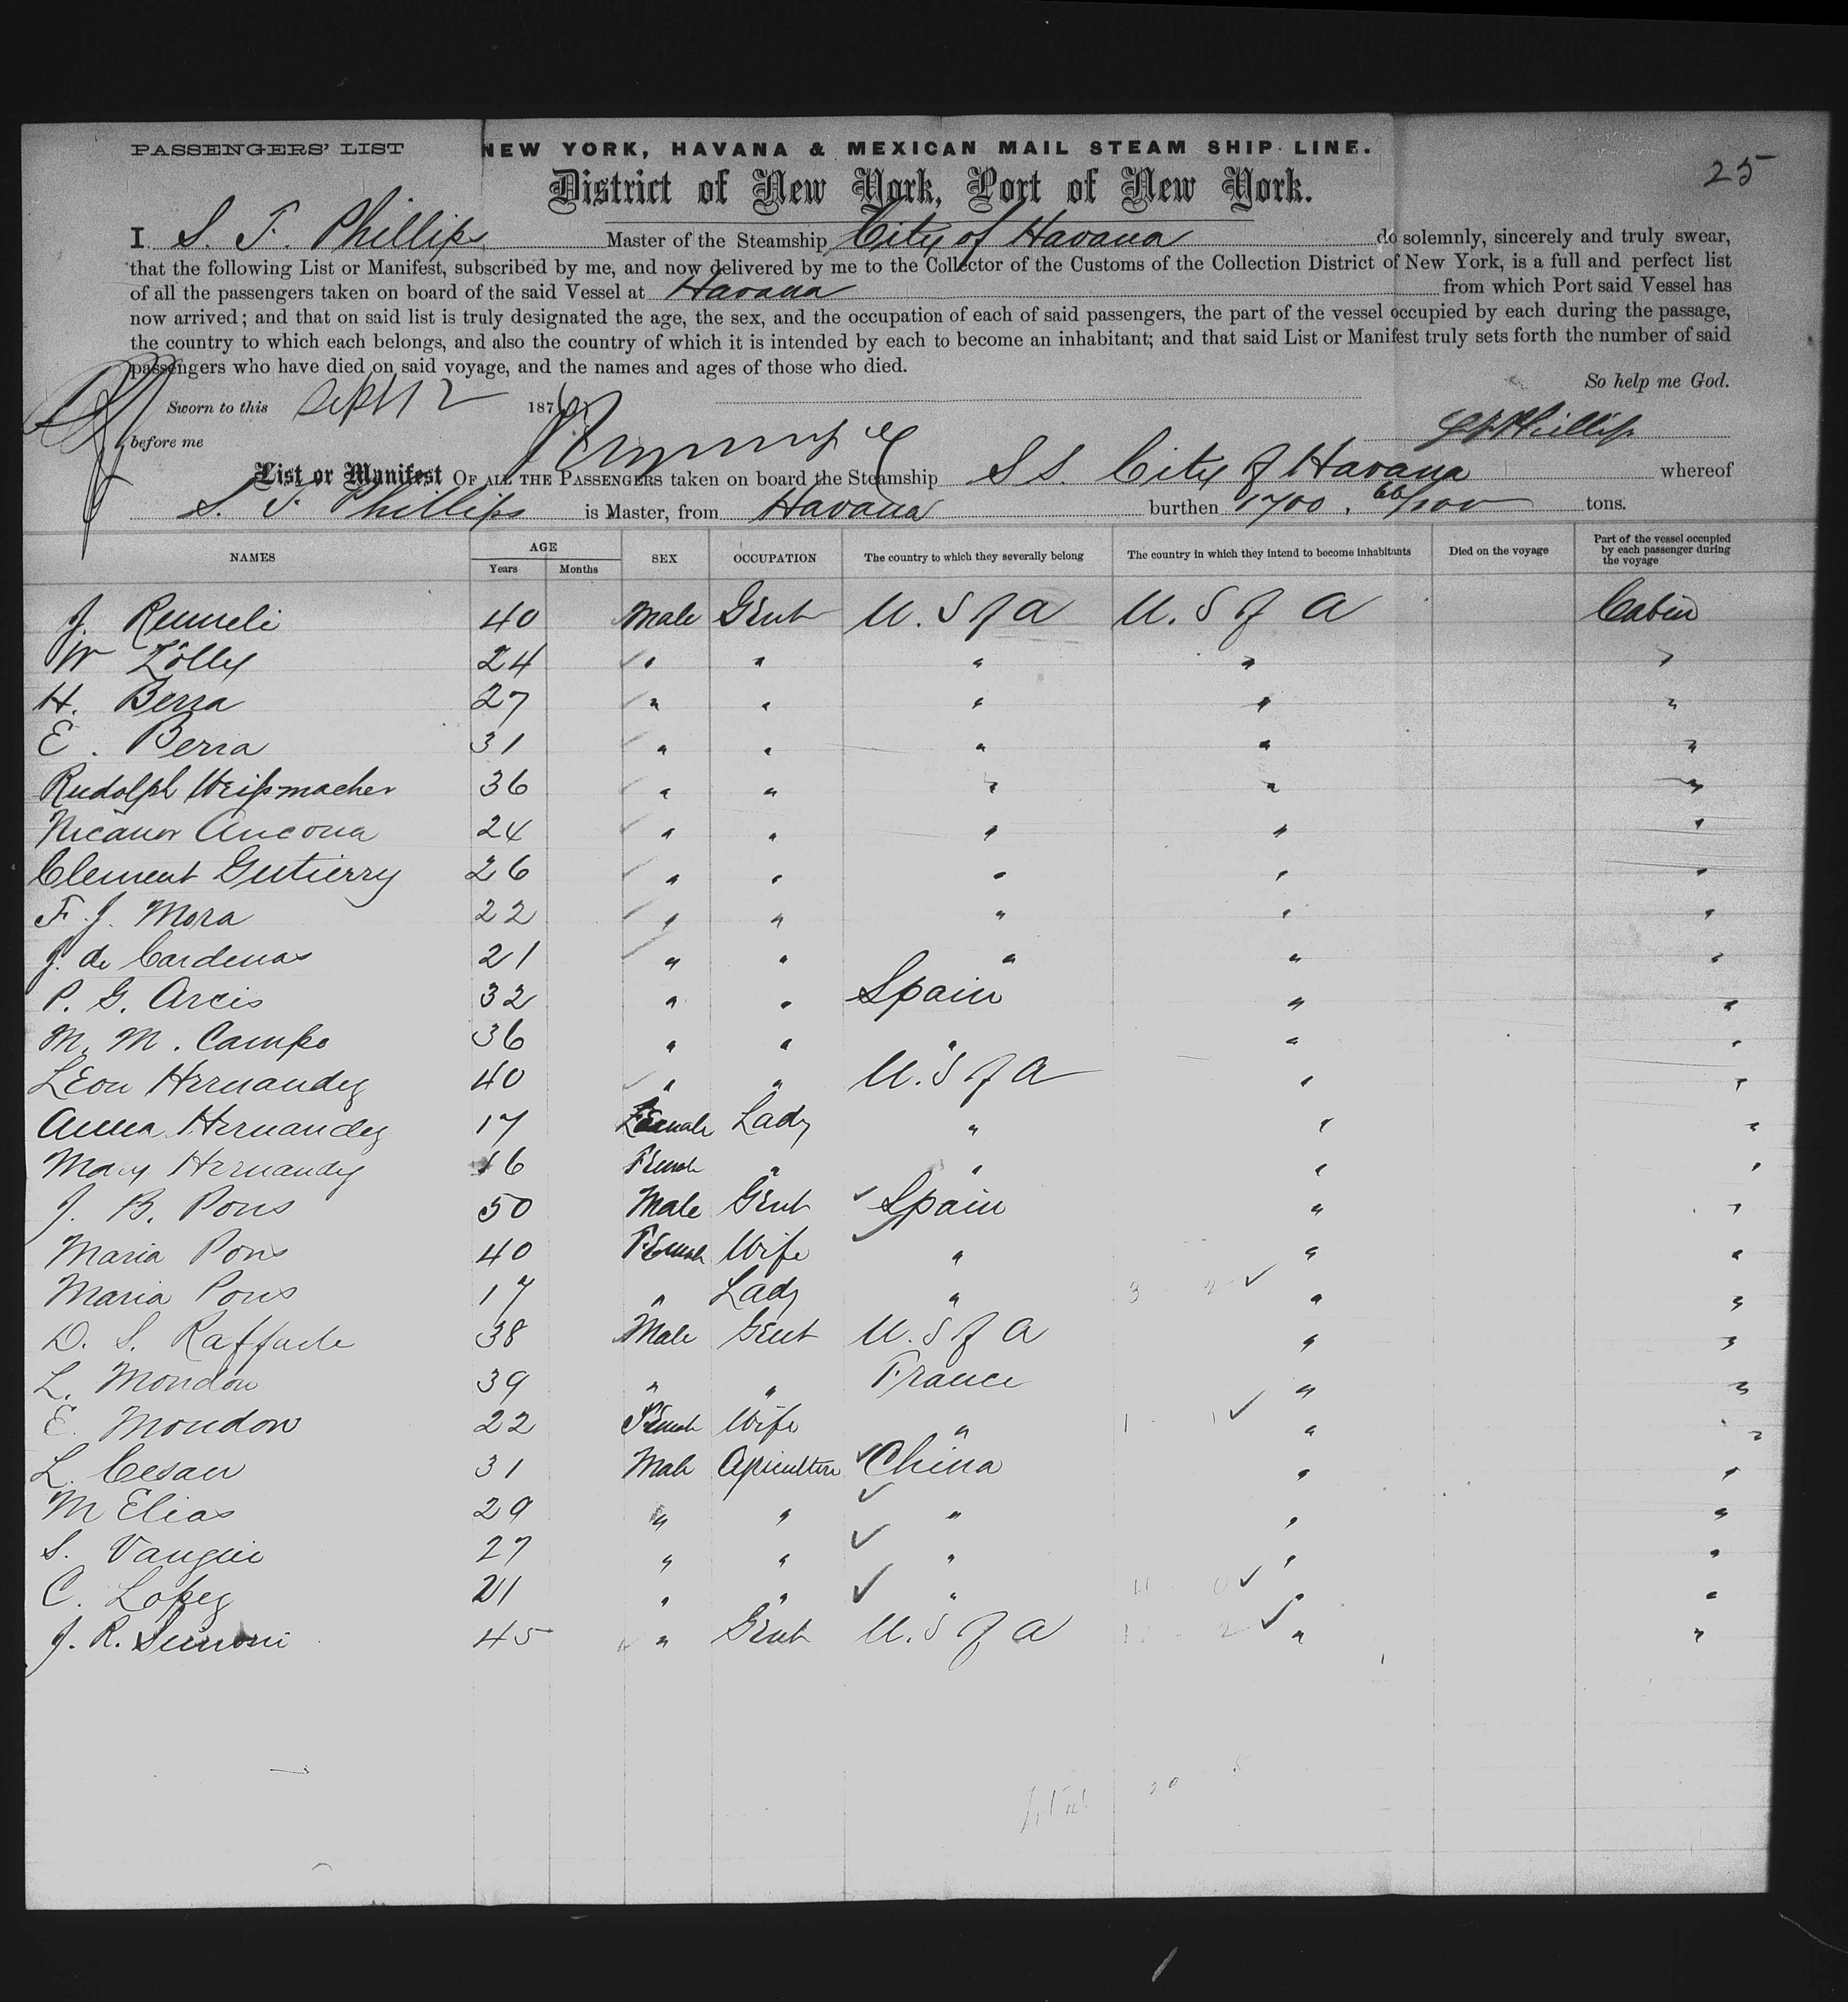 PASSENGERS' LIST NEW YORK, HAVANA & MEXICAN MAIL STEAM SHIP LINE.
25
District of New York, Port of New York.
I S. F. Phillips Master of the Steamship City of Havana do solemnly, sincerely and truly swear,
that the following List or Manifest, subscribed by me, and now delivered by me to the Collector of the Customs of the Collection District of New York, is a full and perfect list
of all the passengers taken on board of the said Vessel at Havana from which Port said Vessel has
now arrived; and that on said list is truly designated the age, the sex, and the occupation of each of said passengers, the part of the vessel occupied by each during the passage,
the country to which each belongs, and also the country of which it is intended by each to become an inhabitant; and that said List or Manifest truly sets forth the number of said
passengers who have died on said voyage, and the names and ages of those who died.
So help me God.
Sworn to this Sept 12 1876
before me
S F Phillips
List or Manifest OF ALL THE PASSENGERS taken on board the Steamship S S. City of Havana whereof
S. F. Phillips is Master, from Havana burthen 1700. 66/100 tons.
NAMES AGE Years Months SEX OCCUPATION The country to which they severally belong The country in which they intend to become inhabitants Died on the voyage Part of the vessel occupied by each passenger during the voyage
J. 40 Male Gent U. S of A U. S of A Cabin
W Zolly 24 " " " " "
H. Berra 27 " " " " "
E. Berra 31 " " " " "
Rudolph Weißmacher 36 " " " " "
Nicanor Ancona 24 " " " " "
Clement Gutierry 26 " " " " "
F. J. Mora 22 " " " " "
J. de Cardenas 21 " " " " "
P. G. Arcis 32 " " Spain " "
M. M. Campo 36 " " " " "
Leon Hernandez 40 " " U. S of A " "
Anna Hernandez 17 Female Lady " " "
Mary Hernandez 16 Female " " " "
J. B. Pons 50 Male Gent Spain " "
Maria Pons 40 Female Wife " " "
Maria Pons 17 " Lady " " "
D. S. Raffaele 38 Male Gent U. S of A " "
L. Mondon 39 " " France " "
E. Mondon 22 Female Wife " " "
L. Cesan 31 Male Agriculture China " "
M Elias 29 " " " " "
S. Vanguie 27 " " " " "
C. Lopez 21 " " " " "
J. R. Simoni 45 " Gent U. S of A " "